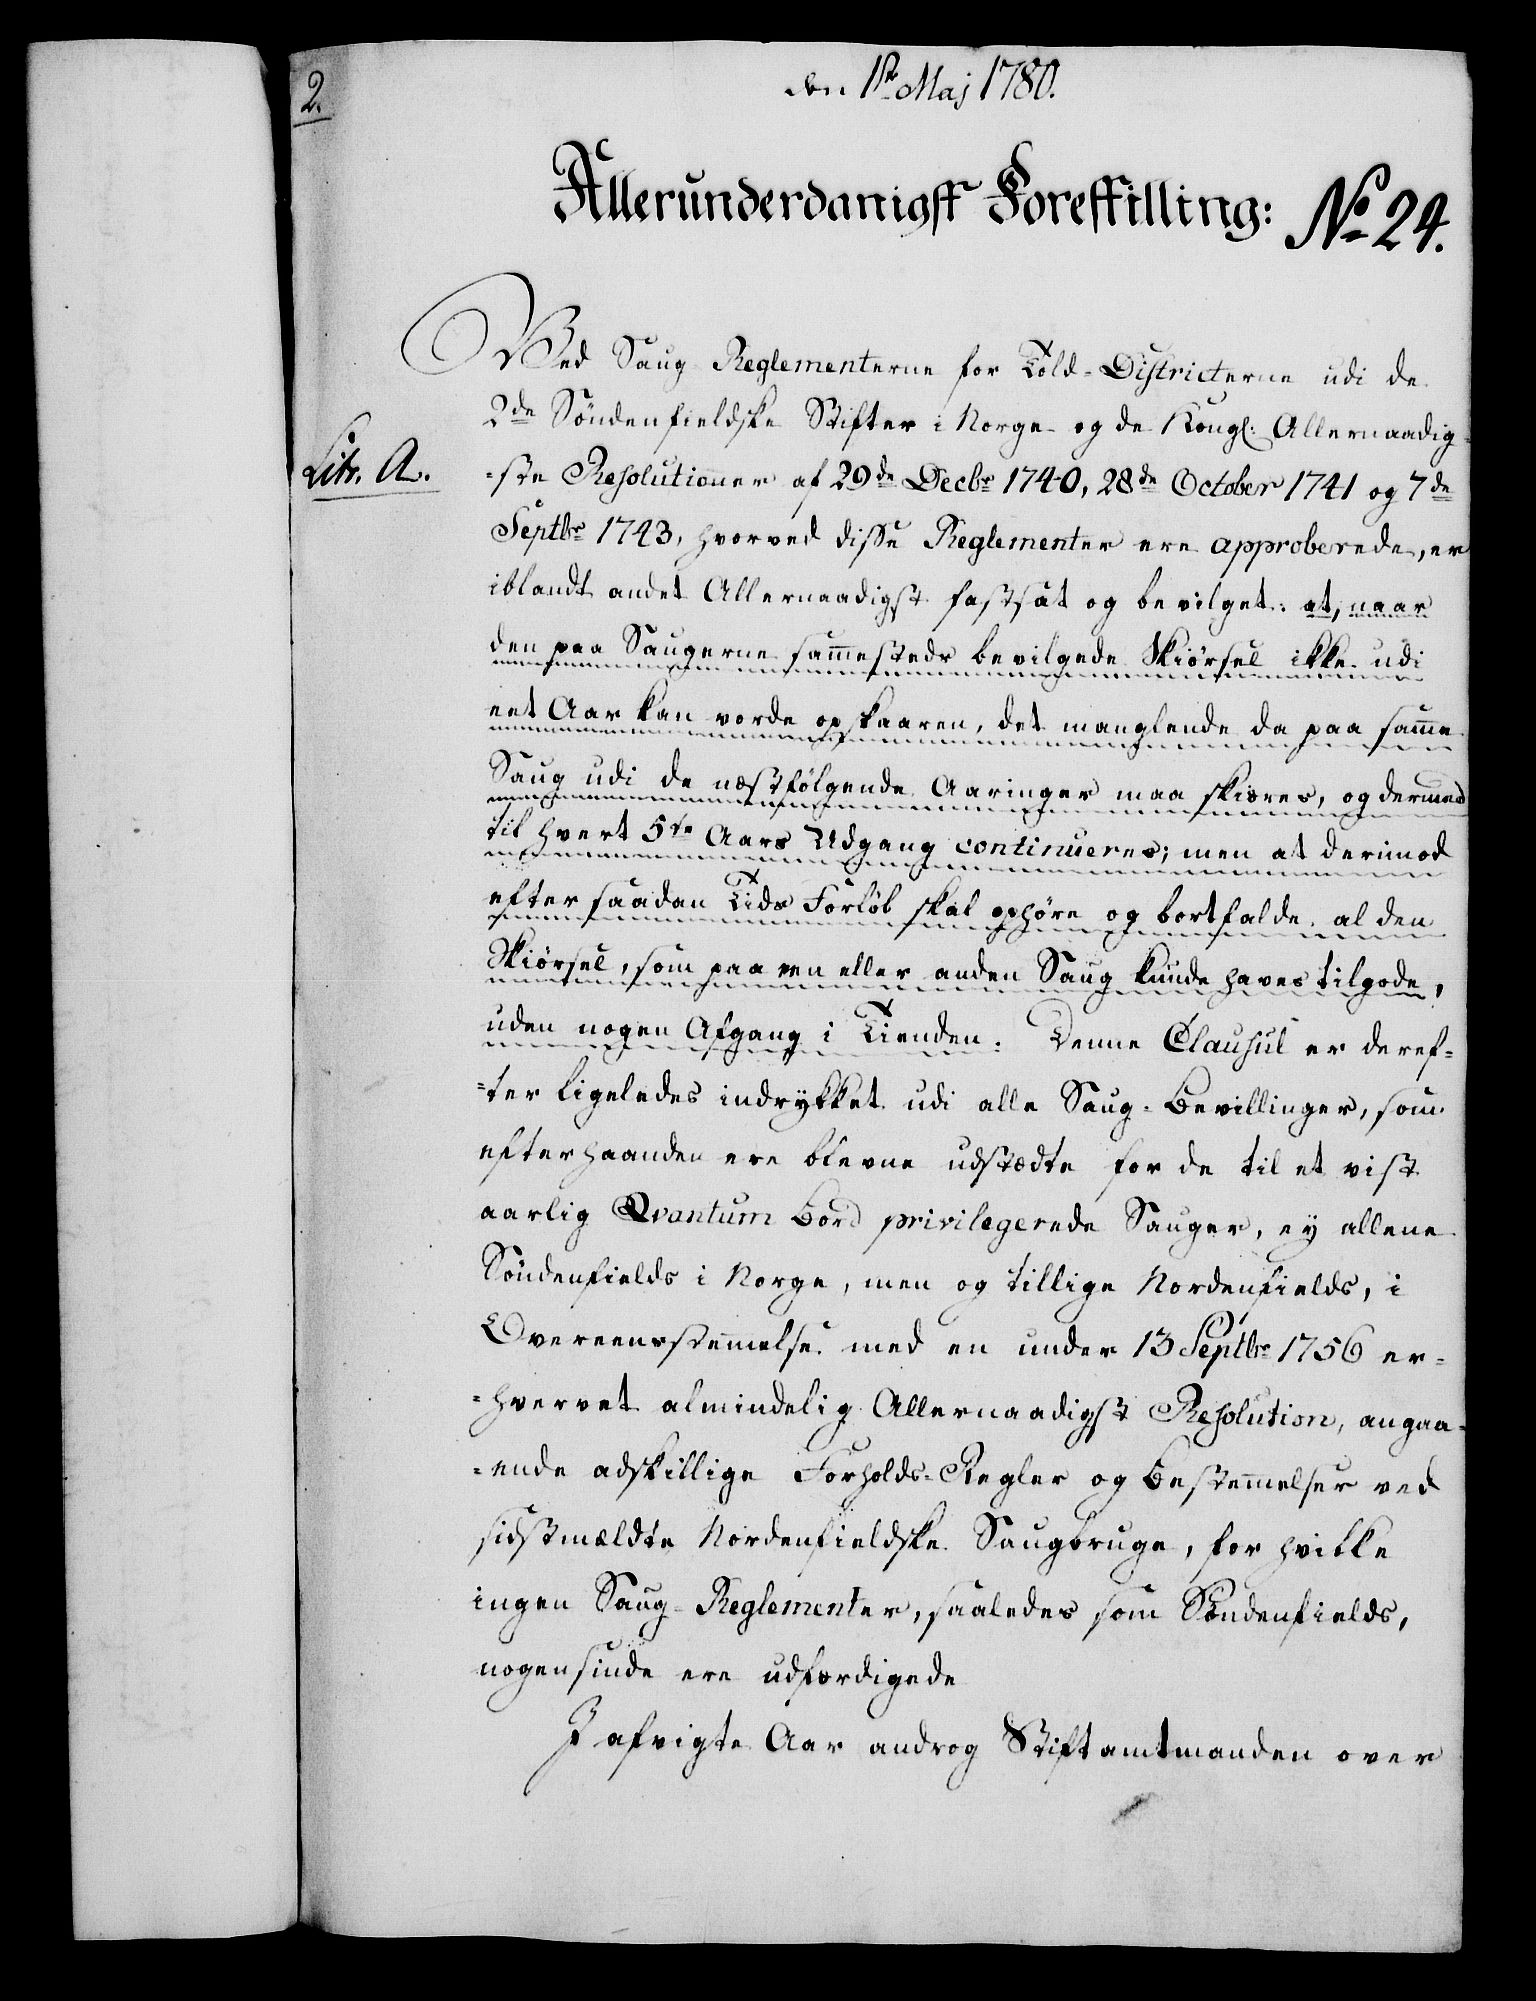 2.
den 1ste Maj 1780.
Allerunderdanigst Forestilling: No 24.
Ved Saug-Reglementerne for Told-Districterne udi de
2de Søndenfieldske Stifter i Norge og de Kongl: Allernaadig-
Litr. A.
=ste Resolutioner af 29de Decbr 1740, 28de October 1741 og 7de
Septbr 1743, hvorved disse Reglementer ere approberede, er
iblandt andet Allernaadigst fastsat og bevilget: at, naar
den paa Saugerne sam̅estedr bevilgede Skiørsel ikke udi
eet Aar kan vorde opskaaren, det manglende da paa sam̅e
Saug udi de næstfølgende Aaringer maa skieres, og dermed
til hvert 5te Aars Udgang continueres; men at derimod
efter saadan Tids Forløb skal ophøre og bortfalde al den
Skiørsel, som paa een eller anden Saug kunde haves tilgode,
uden nogen Afgang i Tienden. Denne Clausul er deref-
=ter ligeledes indrykket udi alle Saug-Bevillinger, som
efterhaanden ere blevne udstædte for de til et vist
aarlig Qvantum Bord privilegerede Sauger, ey allene
Søndenfields i Norge, men og tillige Nordenfields, i
Overeensstem̅else med en under 13 Septbr 1756 er-
=hvervet almindelig Allernaadigst Resolution, angaa-
=ende adskillige Forholds-Regler og Bestem̅elser ved
sidstmældte Nordenfieldske Saugbruge, for hvilke
ingen Saug-Reglementer, saaledes som Søndenfields,
nogensinde ere udfærdigede
I afvigte Aar androg Stiftamtmanden over